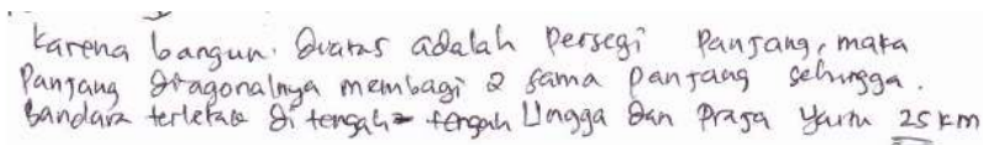 karena bangun. Diatas adalah Persegi Panjang, maka
Panjang Diagonalnya membagi 2 sama panjang sehingga.
Bandara terletak Di tengah-tengah Lingga Dan Praja yaitu 25 km